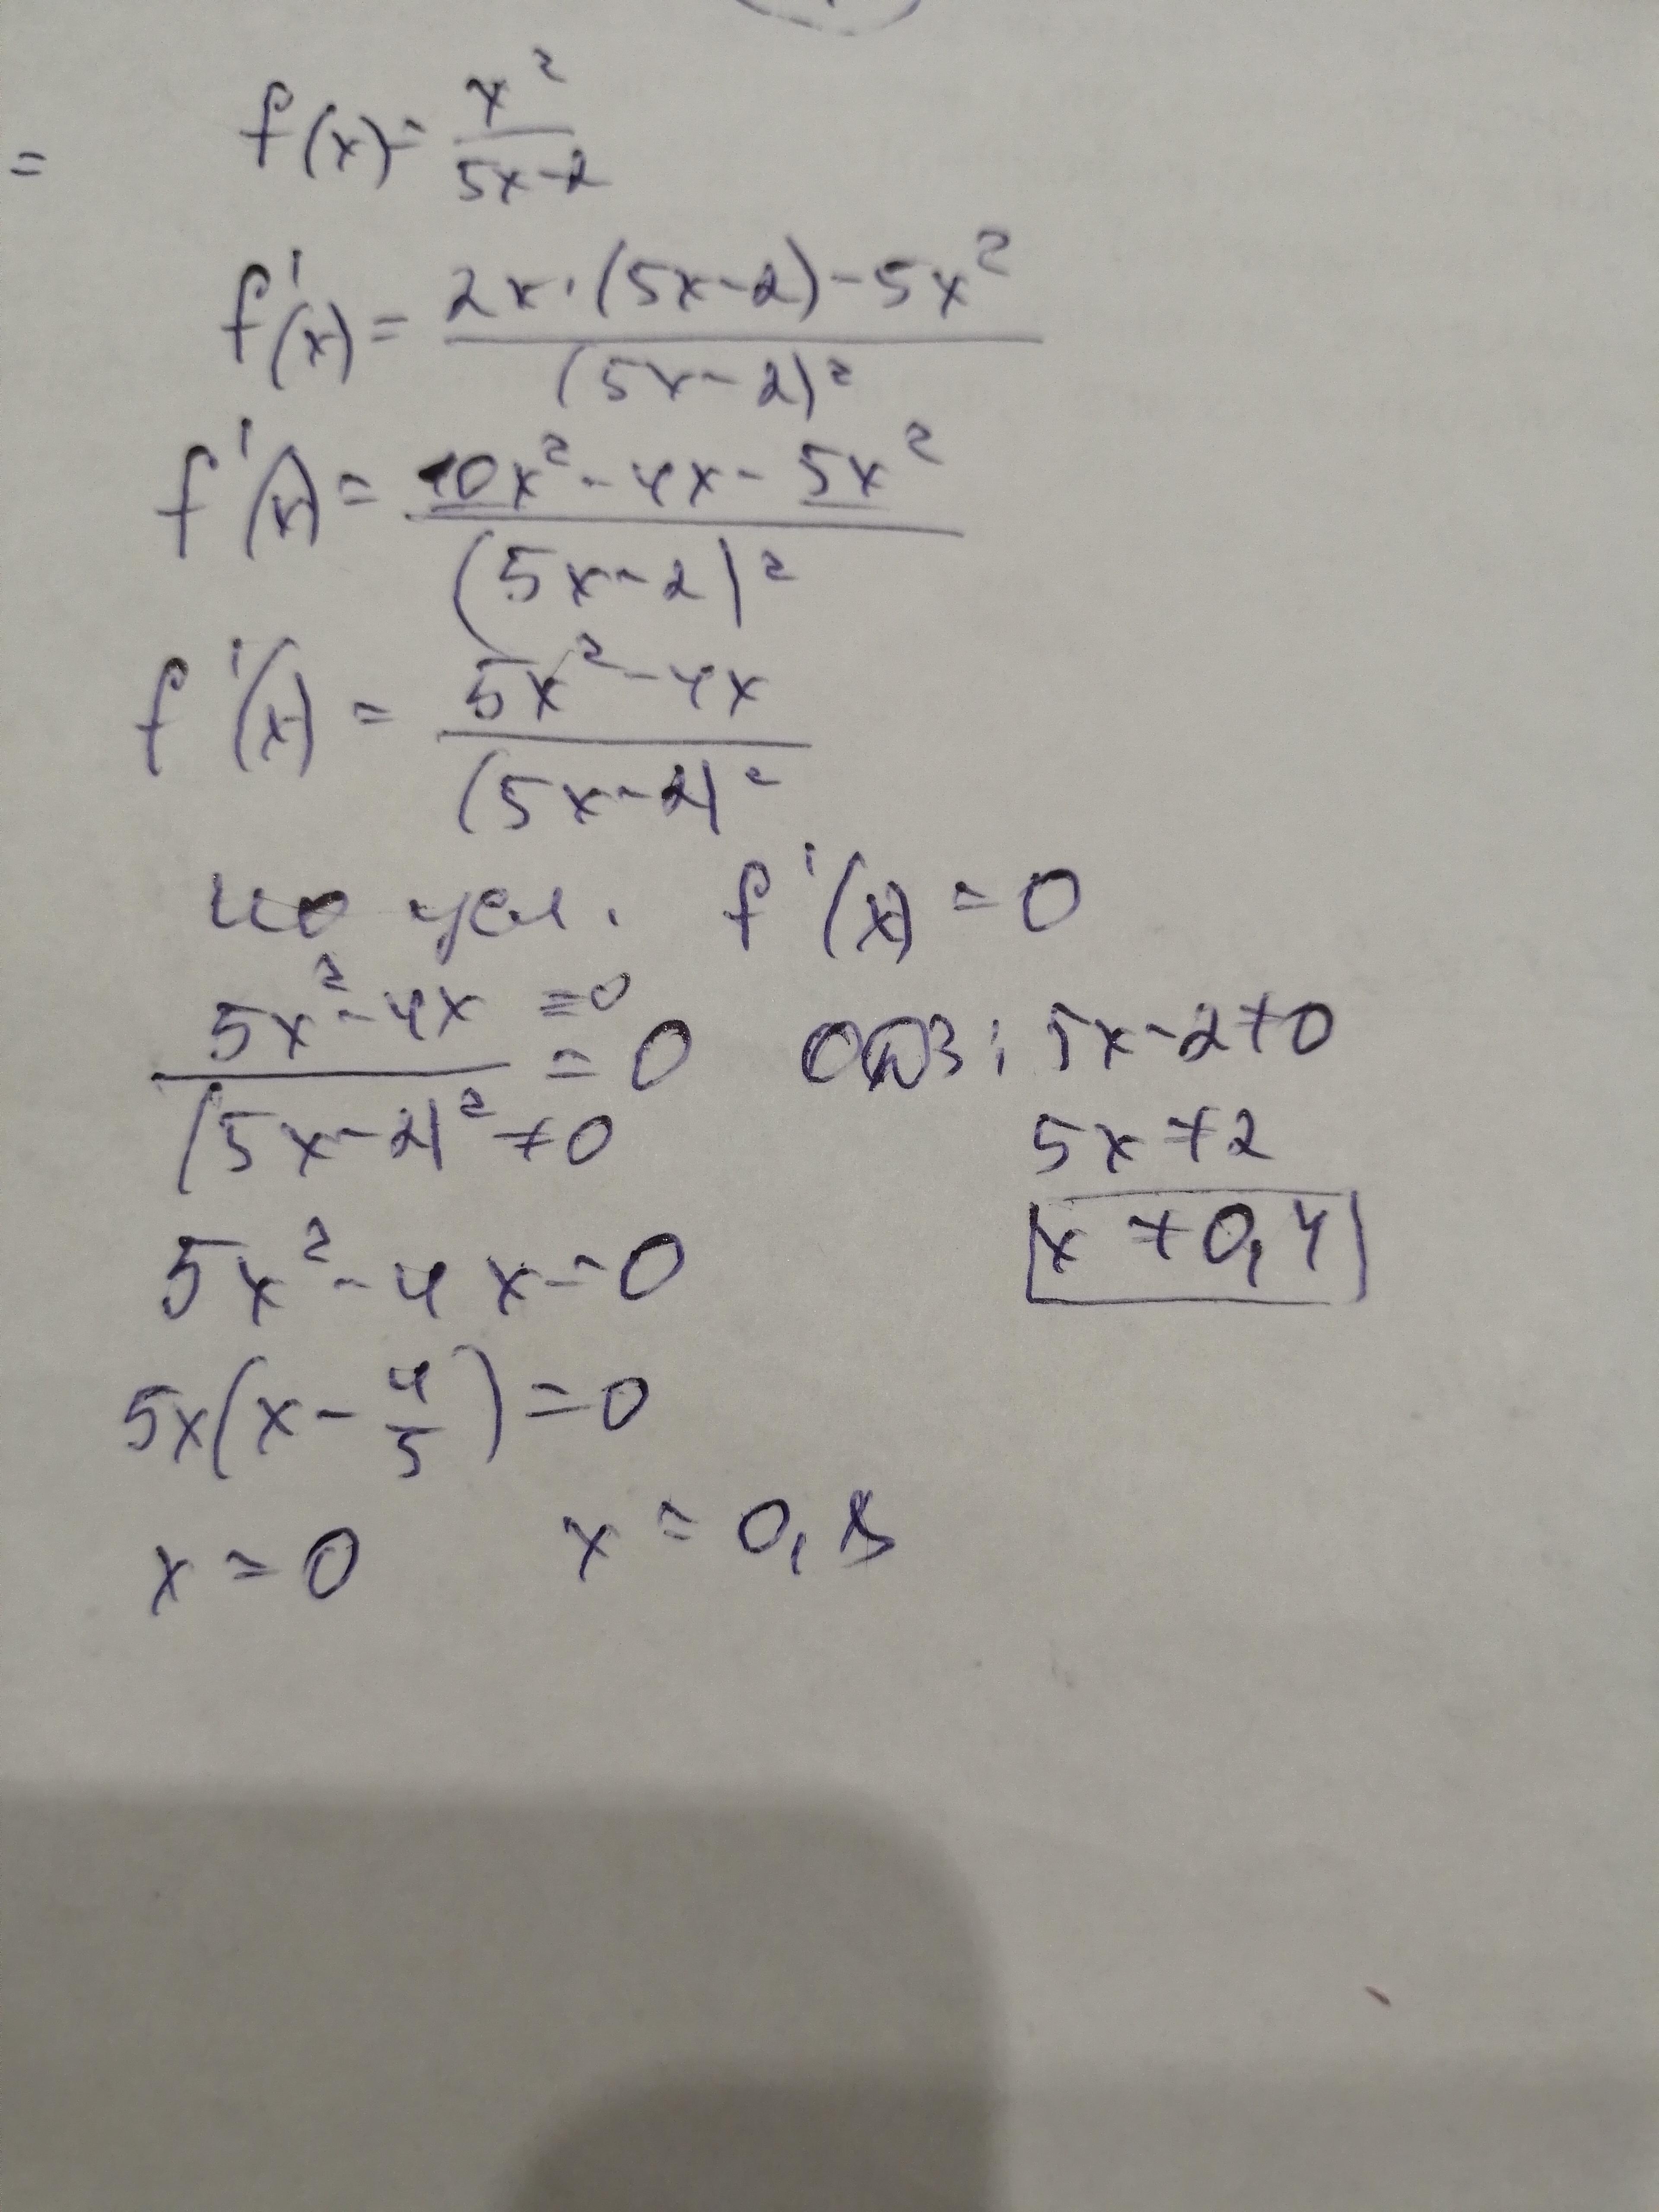 = f(x) = x² / (5x-2)
f'(x) = (2x·(5x-2)-5x²) / (5x-2)²
f'(x) = (10x²-4x-5x²) / (5x-2)²
f'(x) = (5x²-4x) / (5x-2)²
по усл. f'(x) = 0
(5x²-4x =0) / ((5x-2)² ≠0) = 0 ОДЗ: 5x-2≠0
5x≠2
5x²-4x=0 x≠0,4
5x(x-4/5)=0
x=0 x=0,8